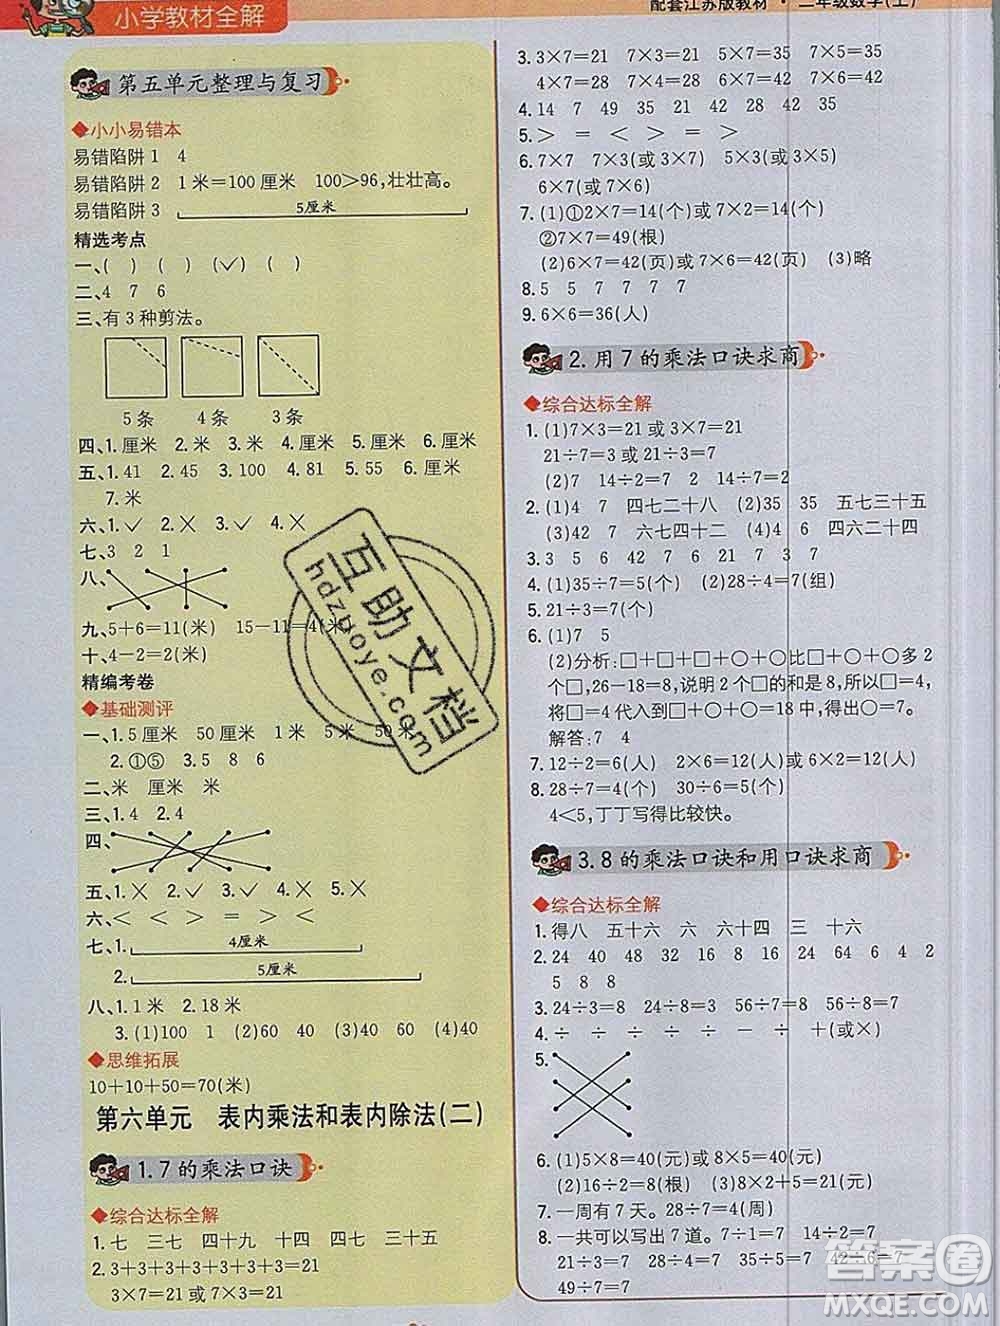 小学教材全解
配套江苏版教材·二年级数学(上)
第五单元整理与复习
◆小小易错本
易错陷阱1 4
易错陷阱2 1米=100厘米 100>96,壮壮高。
易错陷阱3 5厘米
精选考点
一、( ) ( ) (✓) ( )
二、4 7 6
三、有3种剪法。
5条 4条 3条
四、1.厘米 2.米 3.米 4.厘米 5.厘米 6.厘米
五、1.41 2.45 3.100 4.81 5.55 6.60
7.米
六、1.✓ 2.✕ 3.✓ 4.✕
七、3 2 1
八、
九、5+6=11(米) 15-11=4(米)
十、4-2=2(米)
精编考卷
◆基础测评
一、1.5厘米 50厘米 1米 5米 50米
2.①⑤ 3.5 8 6
二、米 厘米 米
三、1.4 2.4
四、
五、1.✕ 2.✓ 3.✓ 4.✓ 5.✕
六、< < > = > <
七、1. 4厘米
2. 5厘米
八、1.1米 2.18米
3.(1)100 1 (2)60 40 (3)40 60 (4)40
◆思维拓展
10+10+50=70(米)
第六单元 表内乘法和表内除法(二)
1.7的乘法口诀
◆综合达标全解
1.七 三七 四十九 十四 四七 三十五
2.3+3+3+3+3+3+3=21
3×7=21 7×3=21
3.3×7=21 7×3=21 5×7=35 7×5=35
4×7=28 7×4=28 6×7=42 7×6=42
4.14 7 49 35 21 42 28 42 35
5.> = < > = >
6.7×7 7×3(或3×7) 5×3(或3×5)
6×7(或7×6)
7.(1)①2×7=14(个)或7×2=14(个)
②7×7=49(根)
(2)6×7=42(页)或7×6=42(页) (3)略
8.5 5 7 7 7 7
9.6×6=36(人)
2.用7的乘法口诀求商
◆综合达标全解
1.(1)7×3=21或3×7=21
21÷7=3或21÷3=7
(2)7 14÷2=7 2 14÷7=2
2.(1)4 7 四七二十八 (2)35 35 五七三十五
(3)42 7 六七四十二 (4)4 6 四六二十四
3.3 5 6 42 7 6 21 7 3 7
4.(1)35÷7=5(棵) (2)28÷4=7(组)
5.21÷3=7(棵)
6.(1)7 5
(2)分析:□+□+□+○+○比□+○+○多2
个□,26-18=8,说明2个□的和是8,所以□=4,
将□=4代入到□+○+○=18中,得出○=7。
解答:7 4
7.12÷2=6(人) 2×6=12(人)或12÷2=6(人)
8.28÷7=4(个) 30÷6=5(个)
4<5,丁丁写得比较快。
3.8的乘法口诀和用口诀求商
◆综合达标全解
1.得八 五十六 六 六十四 三 十六
2.24 40 48 32 16 8 56 64
5 8 8
3.24÷3=8 24÷8=3 56÷7=8 56÷8=7
4.÷ ÷ ÷ - ÷ +(或×)
5.
6.(1)5×8=40(元)或8×5=40(元)
(2)16÷2=8(根) (3)8×2+5=21(元)
7.一周有7天。28÷7=4(周)
8.一共可以写出7道。7÷1=7 14÷2=7
21÷3=7 28÷4=7 35÷5=7 42÷6=7
49÷7=7
互助文档
hdzuoye.com
答案圈
MXQE.COM